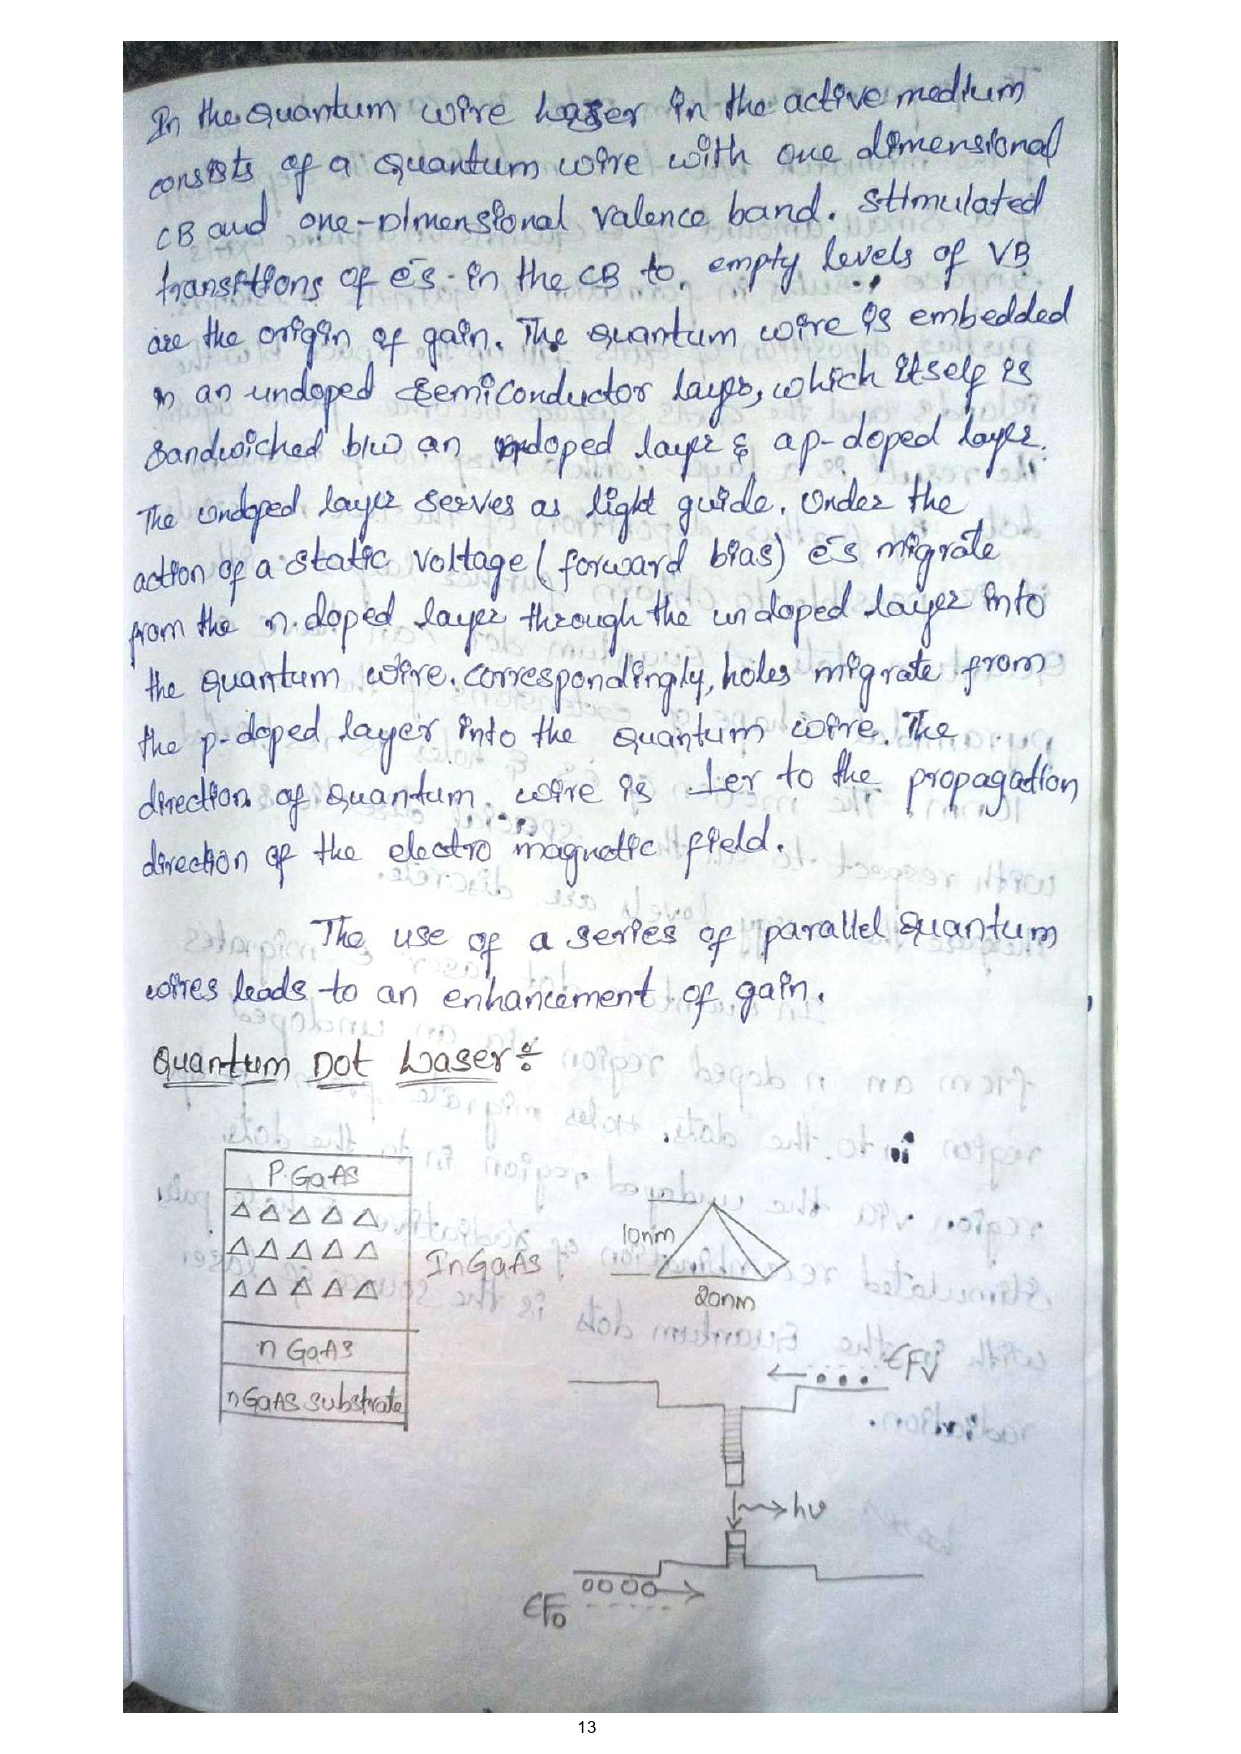 In the Quantum wire Laser in the active medium
consists of a quantum wire with one dimensional
CB and one-Dimensional valence band. Stimulated
transitions of e⁻s in the CB to empty levels of VB
are the origin of gain. The Quantum wire is embedded
in an undoped semiconductor layer, which itself is
sandwiched b/w an n-doped layer & a p-doped layer.
The undoped layer serves as light guide. Under the
action of a static voltage (forward bias) e⁻s migrate
from the n-doped layer through the undoped layer into
the quantum wire. Correspondingly, holes migrate from
the p-doped layer into the quantum wire. The
direction of quantum wire is ⊥er to the propagation
direction of the electro magnetic field.
The use of a series of parallel quantum
wires leads to an enhancement of gain.
Quantum Dot Laser:-
P.GaAs
InGaAs
n GaAs
nGaAs substrate
10nm
20nm
EFv
hν
EFo
13